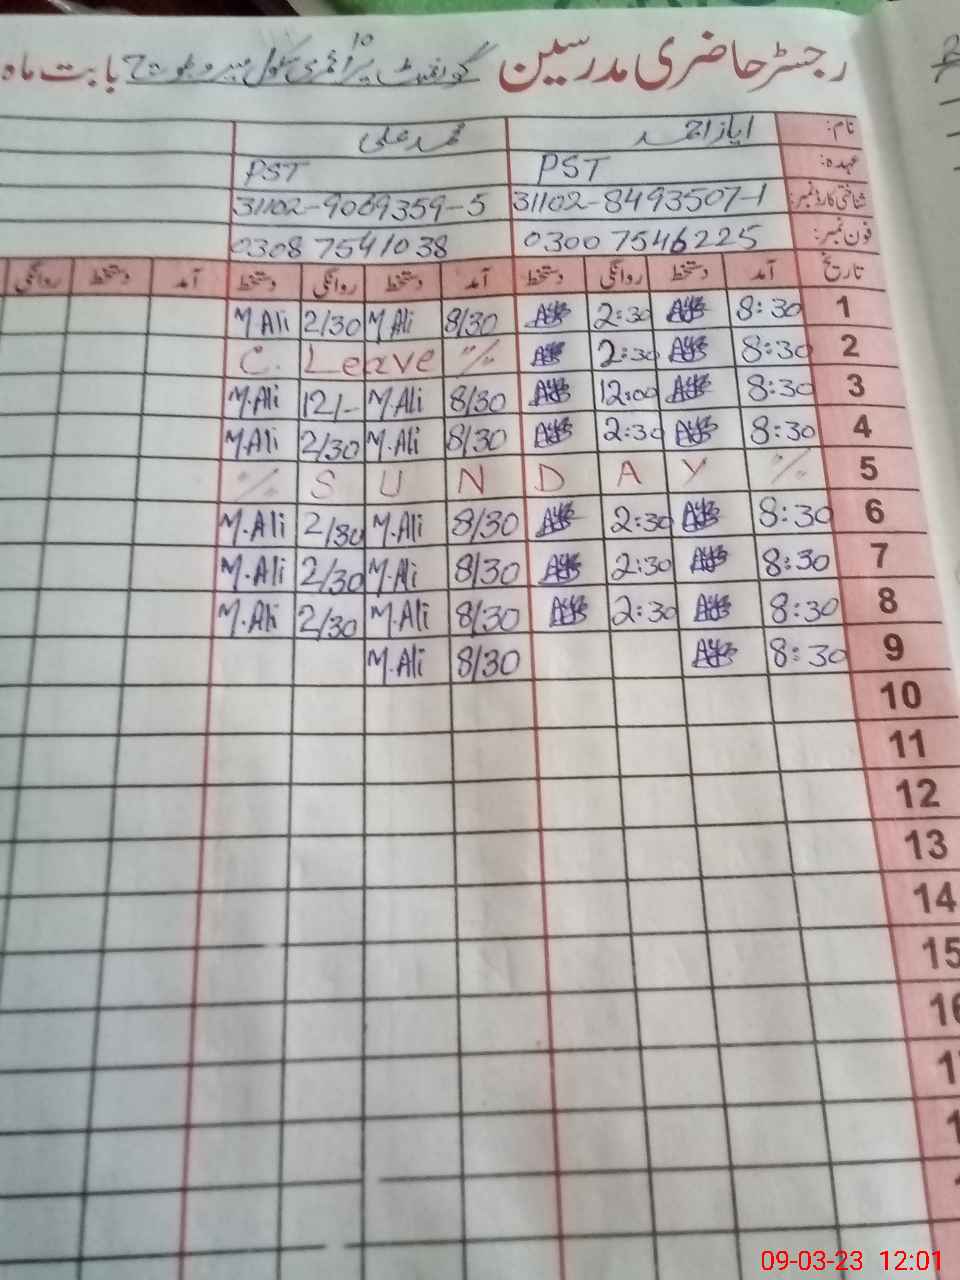 رجسٹر حاضری مدرسین گورنمنٹ پرائمری سکول بابت ماہ
نام: ایاز احمد محمد علی
عہدہ: PST PST
شناختی کارڈ نمبر: 31102-8493507-1 31102-9069359-5
فون نمبر: 03007546225 03087541038
تاریخ آمد دستخط روانگی دستخط آمد دستخط روانگی دستخط آمد دستخط روانگی
1 8:30 2:30 8/30 M.Ali 2/30 M.Ali
2 8:30 2:30 % C. Leave
3 8:30 12:00 8/30 M.Ali 12/- M.Ali
4 8:30 2:30 8/30 M.Ali 2/30 M.Ali
% S U N D A Y % 5
6 8:30 2:30 8/30 M.Ali 2/30 M.Ali
7 8:30 2:30 8/30 M.Ali 2/30 M.Ali
8 8:30 2:30 8/30 M.Ali 2/30 M.Ali
9 8:30 8/30 M.Ali
10
11
12
13
14
15
09-03-23 12:01